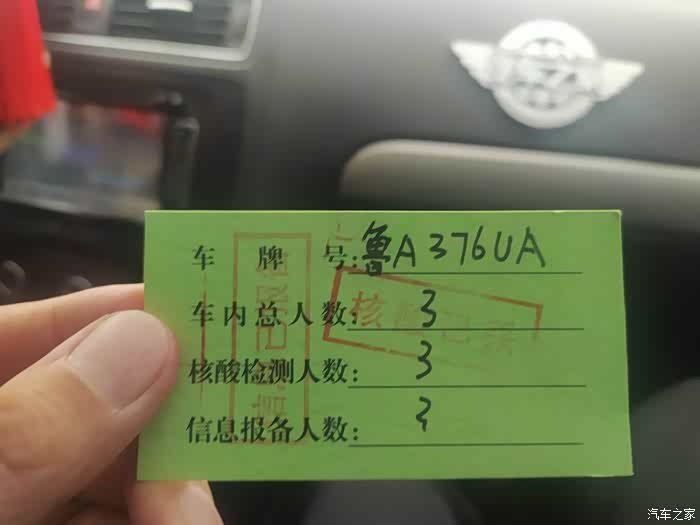 车牌号:鲁A376UA
车内总人数:3
核酸检测人数:3
信息报备人数:3
核酸已采
信息已报备
汽车之家